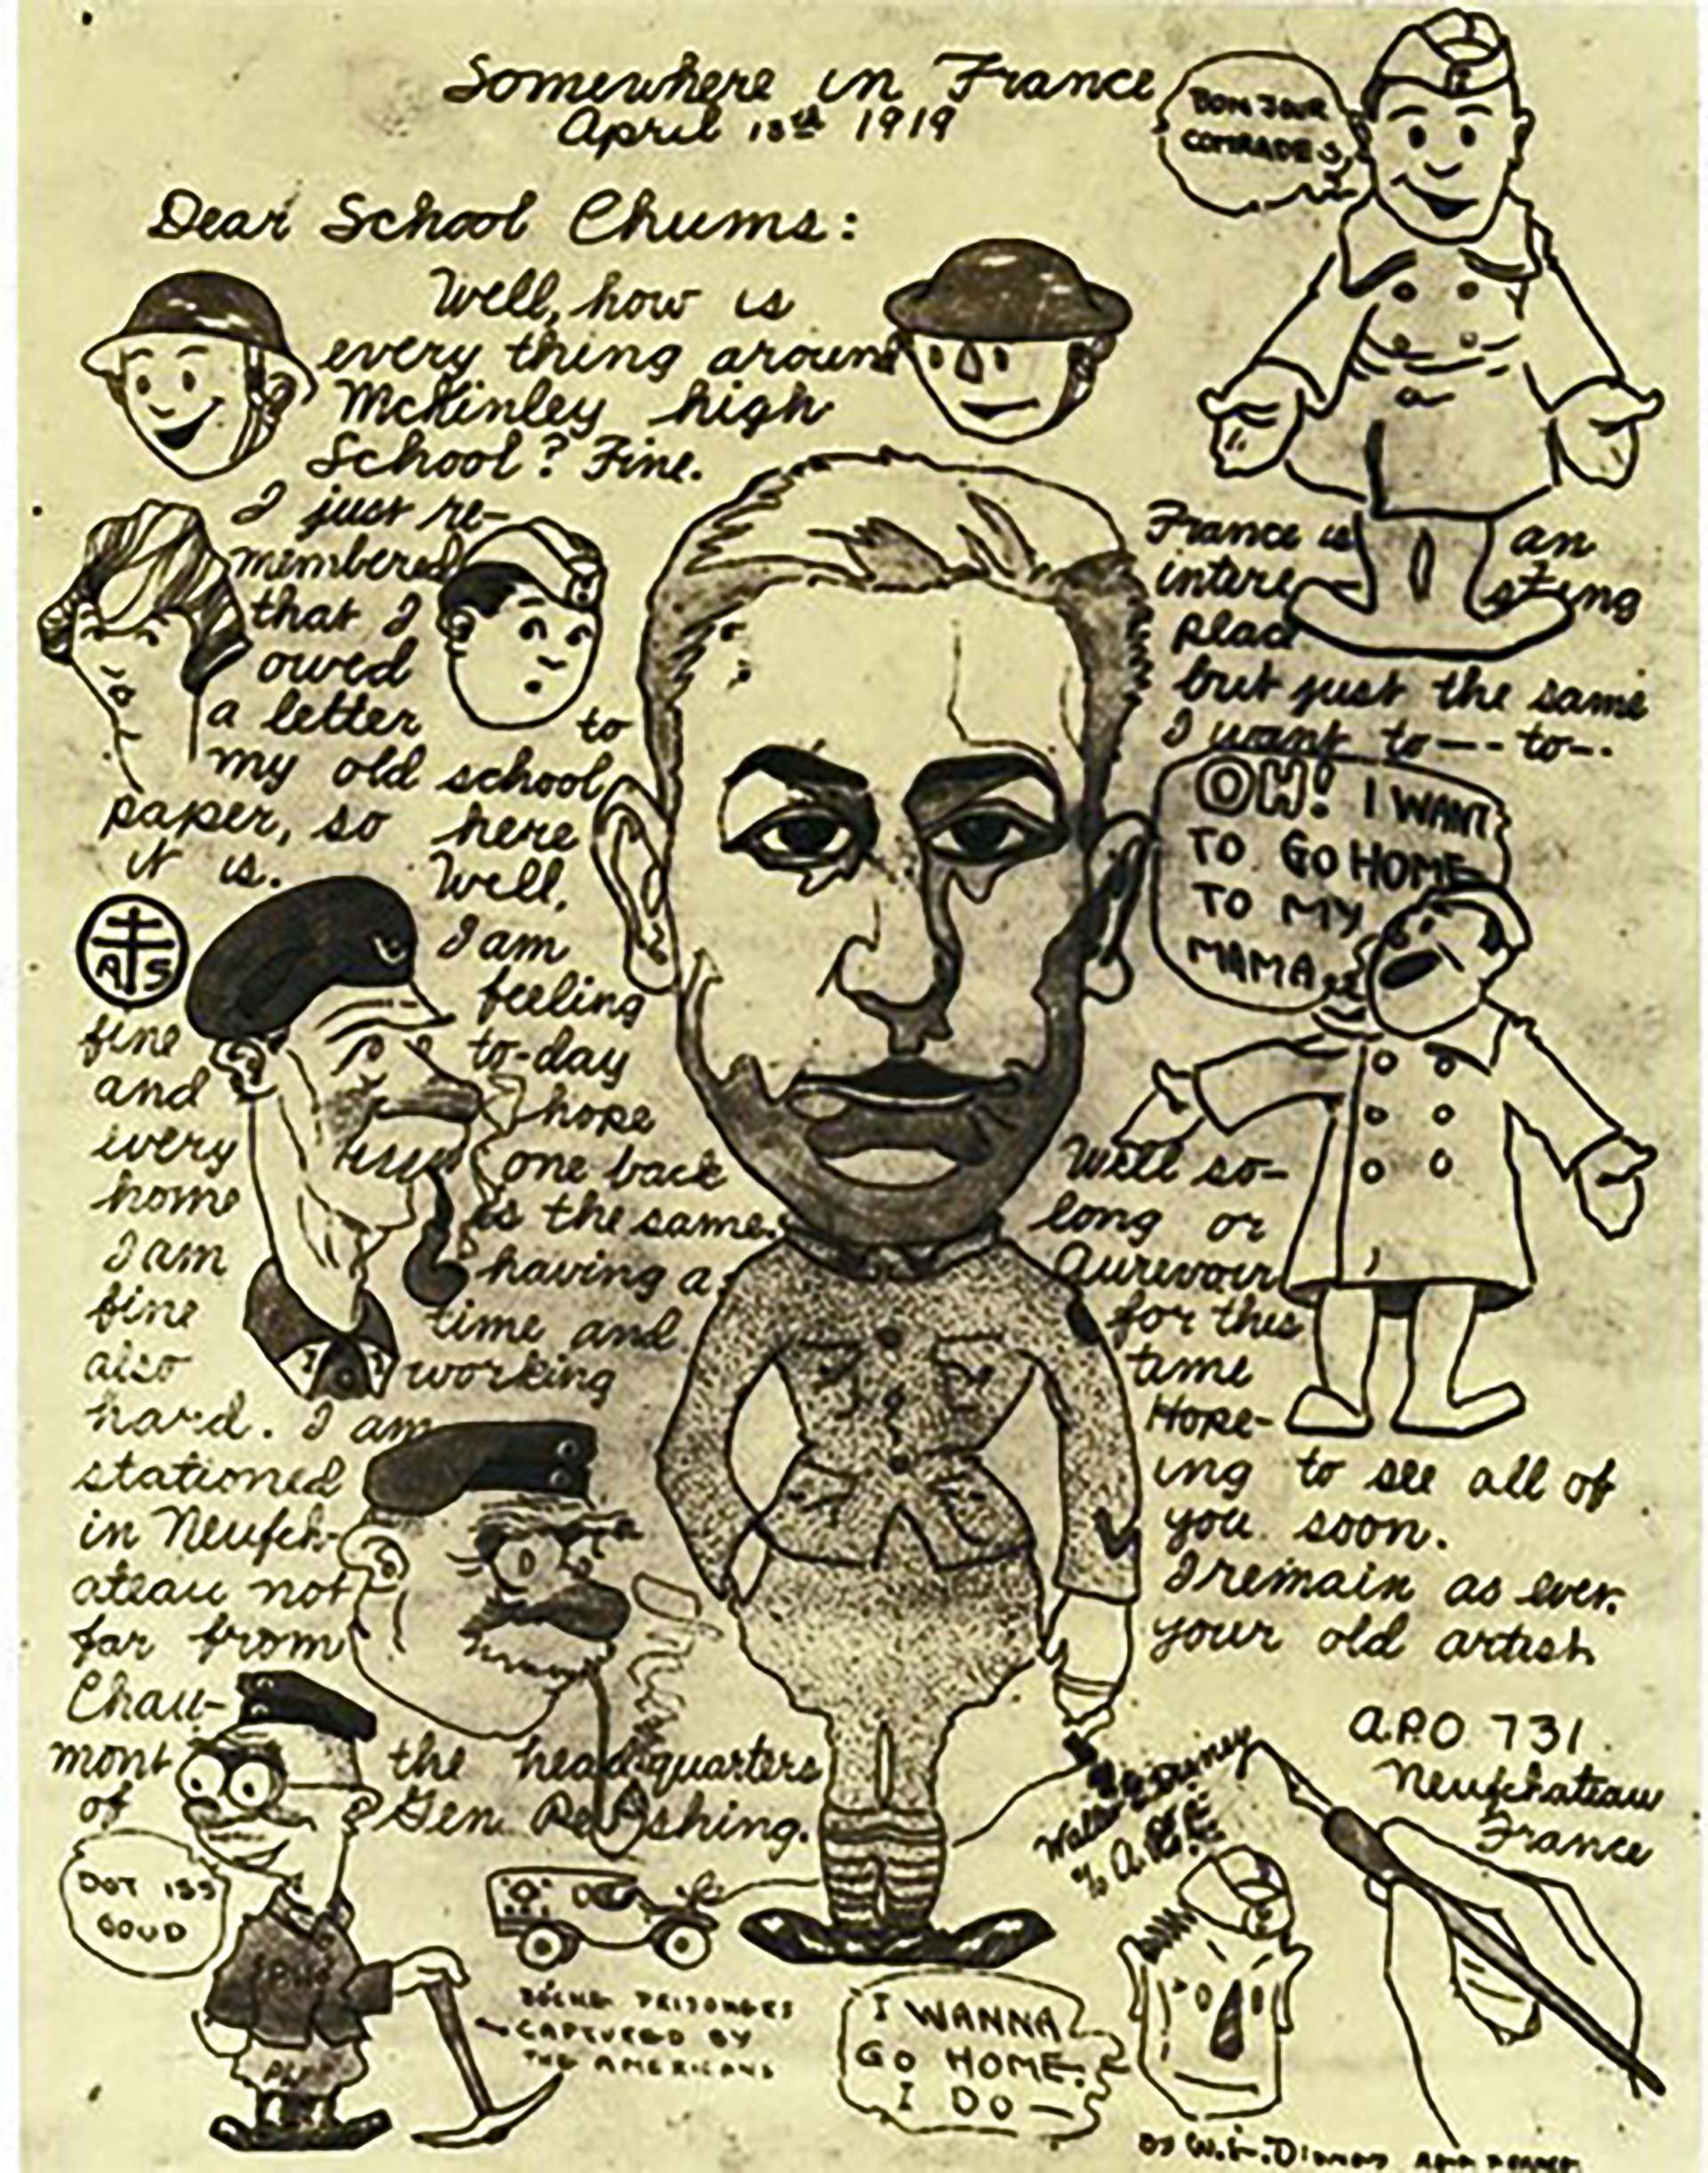 Somewhere in France
April 13th 1919
BON JOUR
COMRADES
Dear School Chums:
Well, how is
every thing around
McKinley high
School? Fine.
I just re-
membered
that I
owed
a letter to
my old school
paper, so here
it is. Well,
I am
feeling
A S
fine to-day
and hope
every one back
home is the same.
I am having a
fine time and
also working
hard. I am
stationed
in Neufch-
ateau not
far from
Chau-
mont the headquarters
of Gen Pershing.
France is an
interesting
place
but just the same
I want to --- to --.
OH! I WANT
TO GO HOME
TO MY
MAMA
Well so-
long or
Aurevoir
for this
time
Hope-
ing to see all of
you soon.
I remain as ever.
your old artist
Walter Disney
A.P.O 731
Neufchateau
France
DOT ISS
GOUD
PW
PW
BOCHE PRISONERS
CAPTURED BY
THE AMERICANS
I WANNA
GO HOME.
I DO —
BY W.E. DISNEY